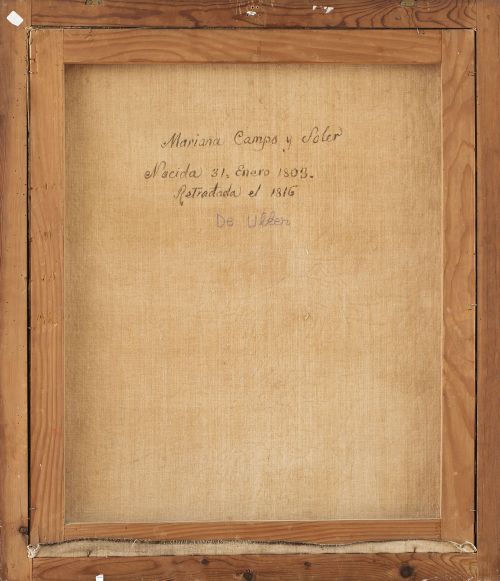 Mariana Campo y Soler
Nacida 31, Enero 1809.
Retratada el 1816
De Ulken